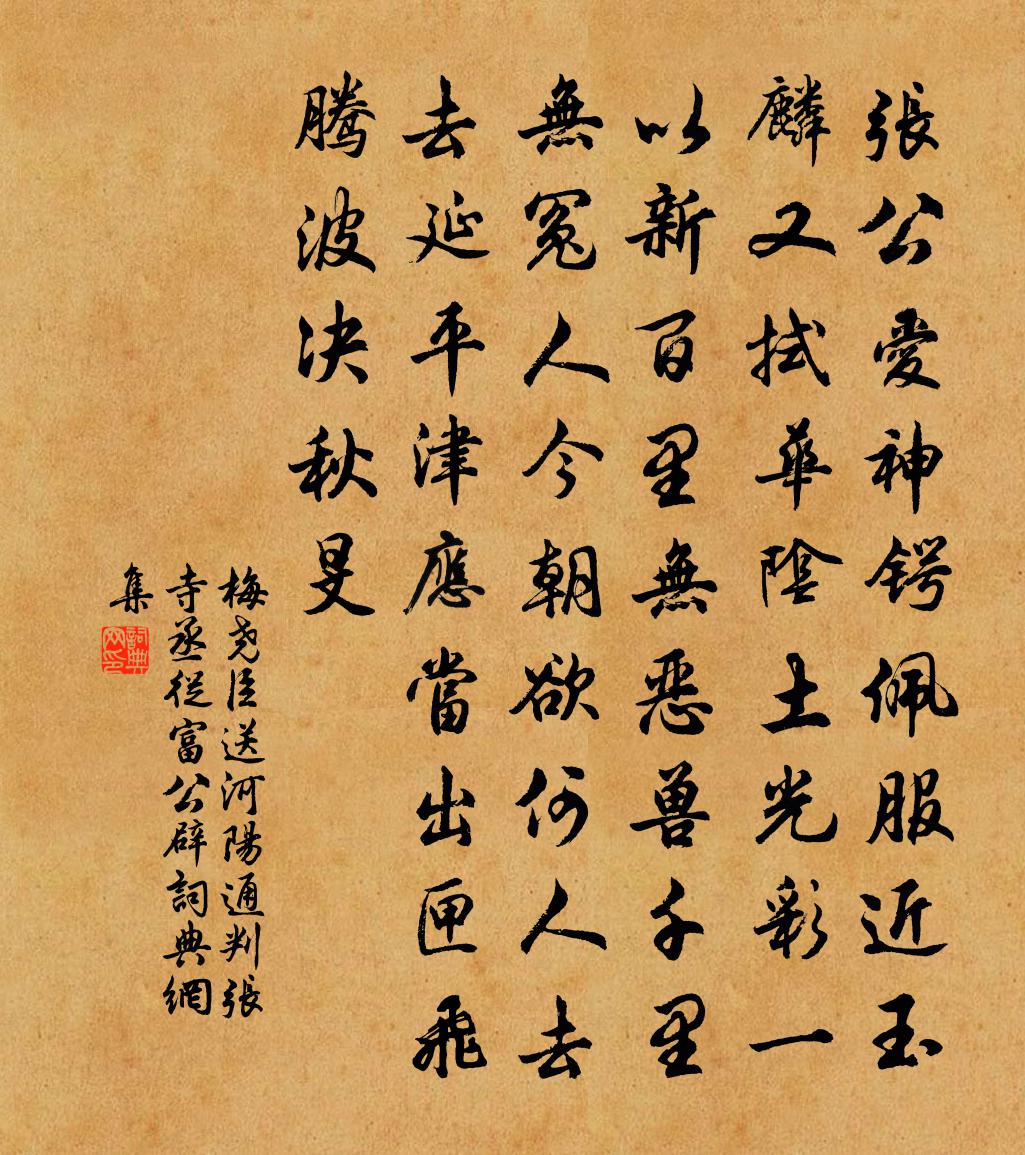 張公愛神锷佩服近玉
麟又拭華陰土光彩一
以新百里無惡兽千里
無冤人今朝欲何人去
去延平津應當出匣飛
腾波决秋旻
梅尧臣送河陽通判張
寺丞從富公辟詞典網
集
詞典网印